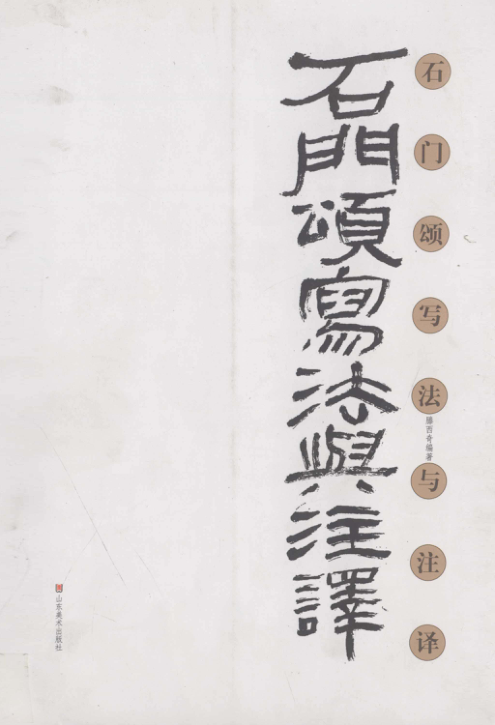 石门颂写法与注译
滕西奇编著
石門頌寫法與注譯
山东美术出版社